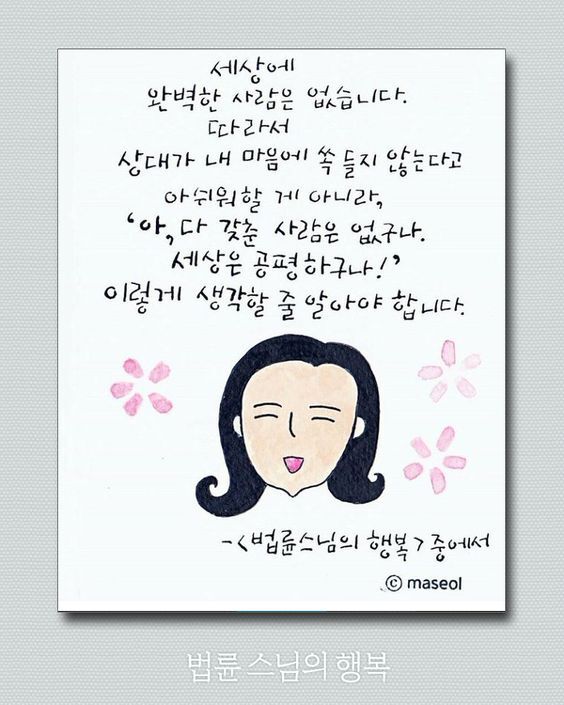 세상에
완벽한 사람은 없습니다.
따라서
상대가 내 마음에 쏙 들지 않는다고
아쉬워할 게 아니라,
'아, 다 갖춘 사람은 없구나.
세상은 공평하구나!'
이렇게 생각할 줄 알아야 합니다.
-<법륜스님의 행복> 중에서
ⓒ maseol
법륜 스님의 행복